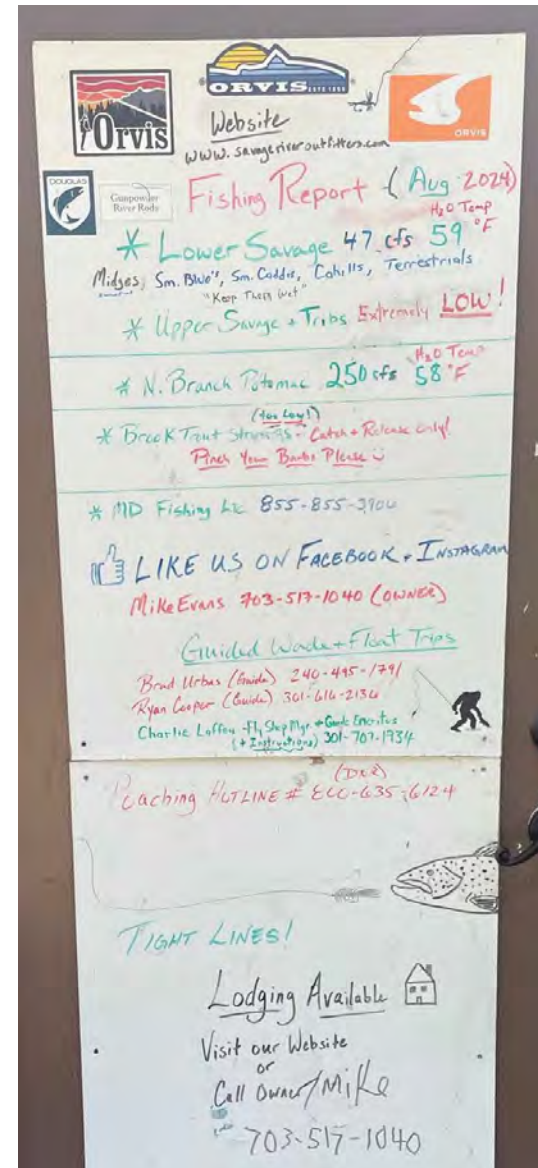 Orvis
ORVIS
ORVIS
Website
www.savageriveroutfitters.com
DOUGLAS
Gunpowder
River Rods
Fishing Report (Aug 2024)
H2O Temp
* Lower Savage 47 cfs 59 °F
Midges, Sm. Blue's, Sm. Caddis, Cahills, Terrestrials
"Keep Them Wet"
* Upper Savage + Tribs Extremely LOW!
H2O Temp
* N. Branch Potomac 250 cfs 58 °F
(too Low!)
* Brook Trout Streams - Catch + Release Only!
Pinch Your Barbs Please
* MD Fishing Lic 855-855-3906
LIKE US ON FACEBOOK + INSTAGRAM
Mike Evans 703-517-1040 (OWNER)
Guided Wade + Float Trips
Brad Urbas (Guide) 240-495-1791
Ryan Cooper (Guide) 301-616-2134
Charlie - Fly Shop Mgr. + Guide Emeritus
(+ Instructions) 301-707-1934
(DNR)
Poaching HOTLINE # 800-635-6124
TIGHT LINES!
Lodging Available
Visit our Website
or
Call Owner/Mike
703-517-1040